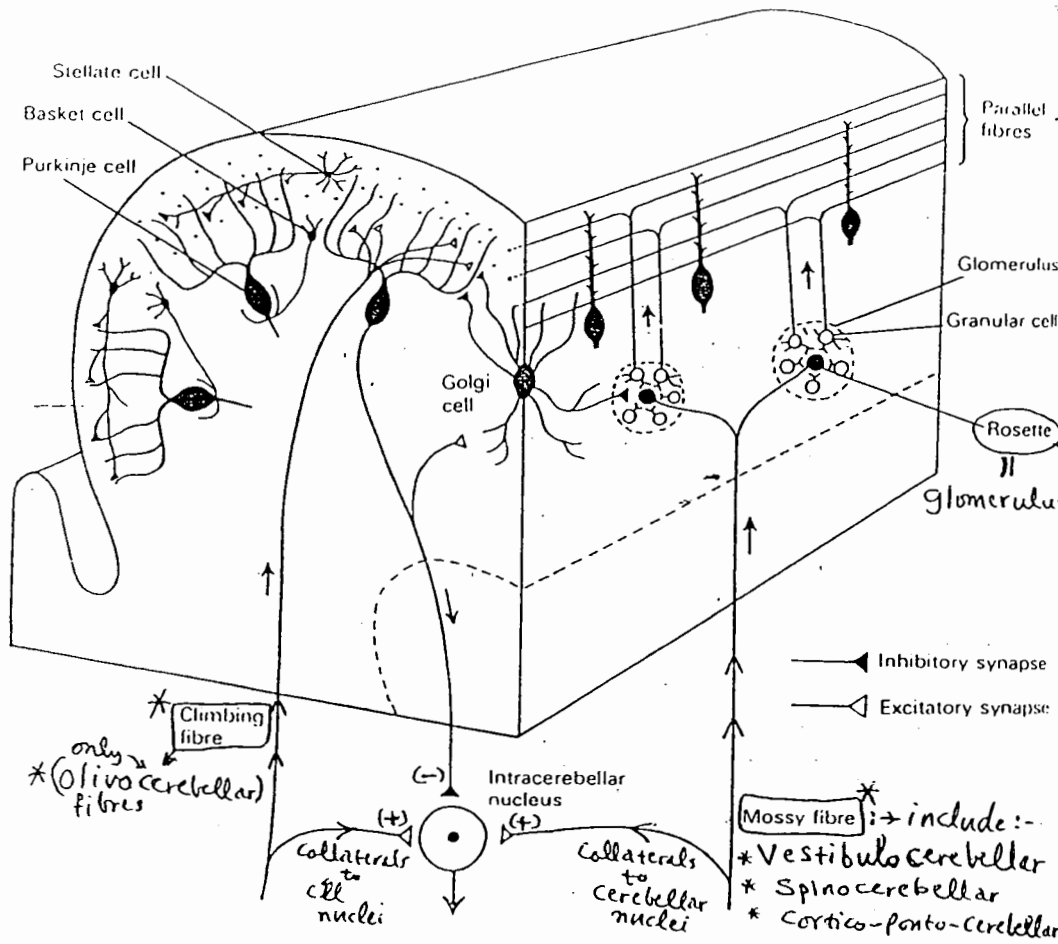 Stellate cell
Basket cell
Purkinje cell
Parallel
fibres
Glomerulus
Granular cell
Golgi
cell
Rosette
||
glomerulu
Inhibitory synapse
Excitatory synapse
* Climbing
fibre
only
* (Olivocerebellar)
fibres
(-)
Intracerebellar
nucleus
(+)
(+)
Collaterals
to
cll
nuclei
Collaterals
to
cerebellar
nuclei
*
Mossy fibre :→ include :-
* Vestibulocerebellar
* Spinocerebellar
* Cortico-ponto-cerebellar